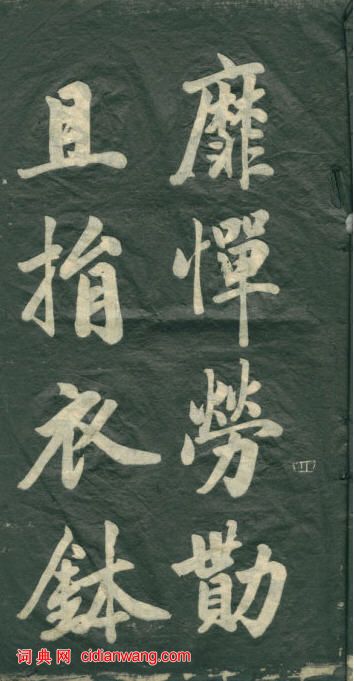 靡憚勞勩
且捐衣鉢
词典网 cidianwang.com